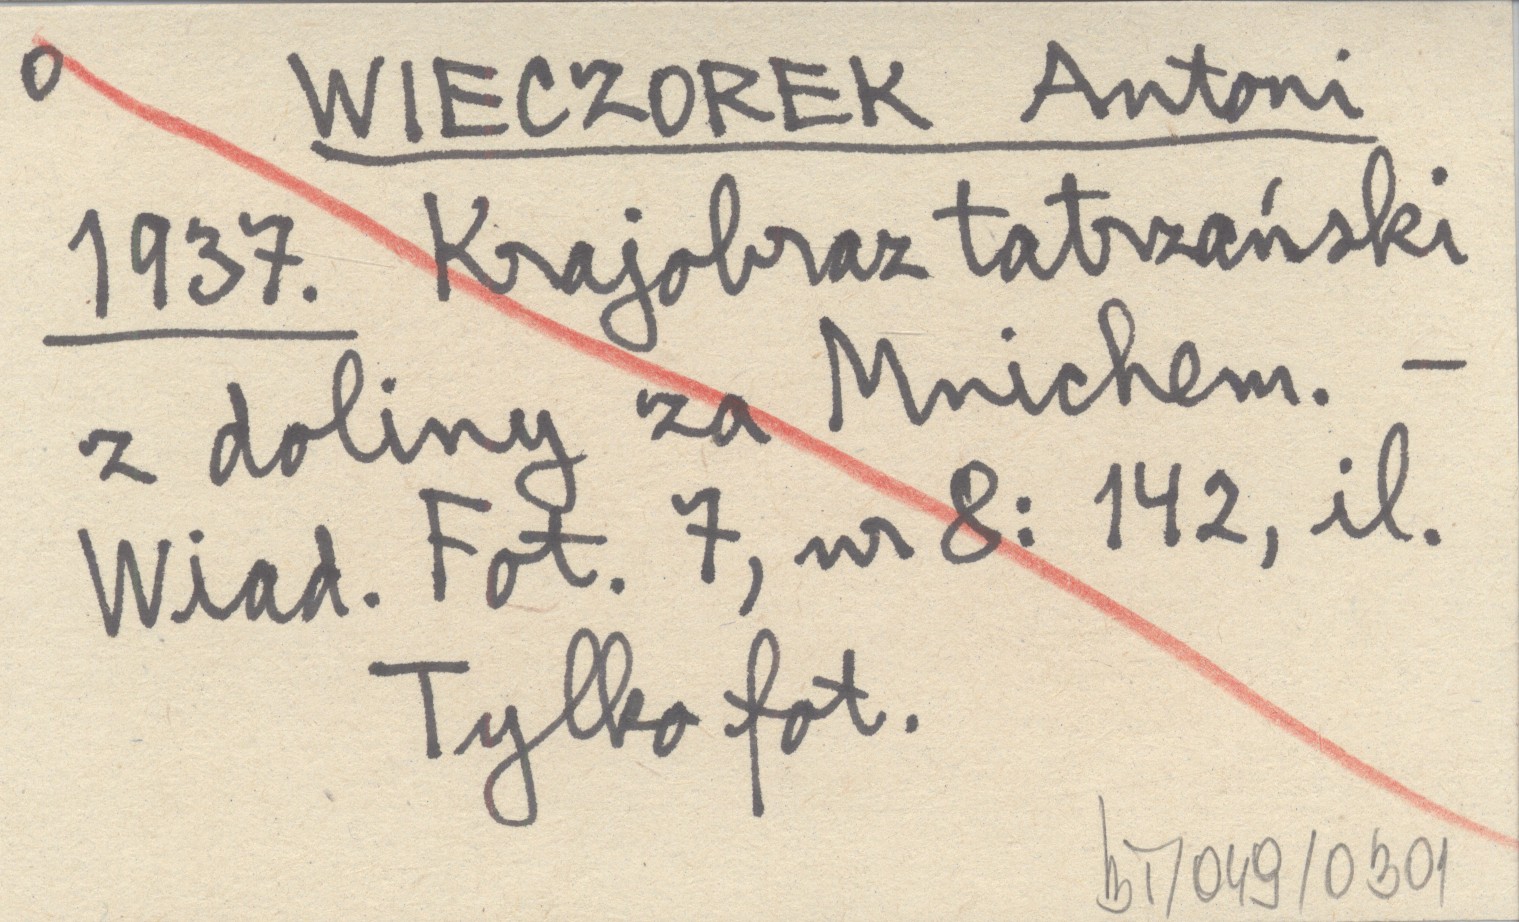 o WIECZOREK Antoni
1937. Krajobraz tatrzański
z doliny za Mnichem. –
Wiad. Fot. 7, nr 8: 142, il.
Tylko fot.
BT/049/0301